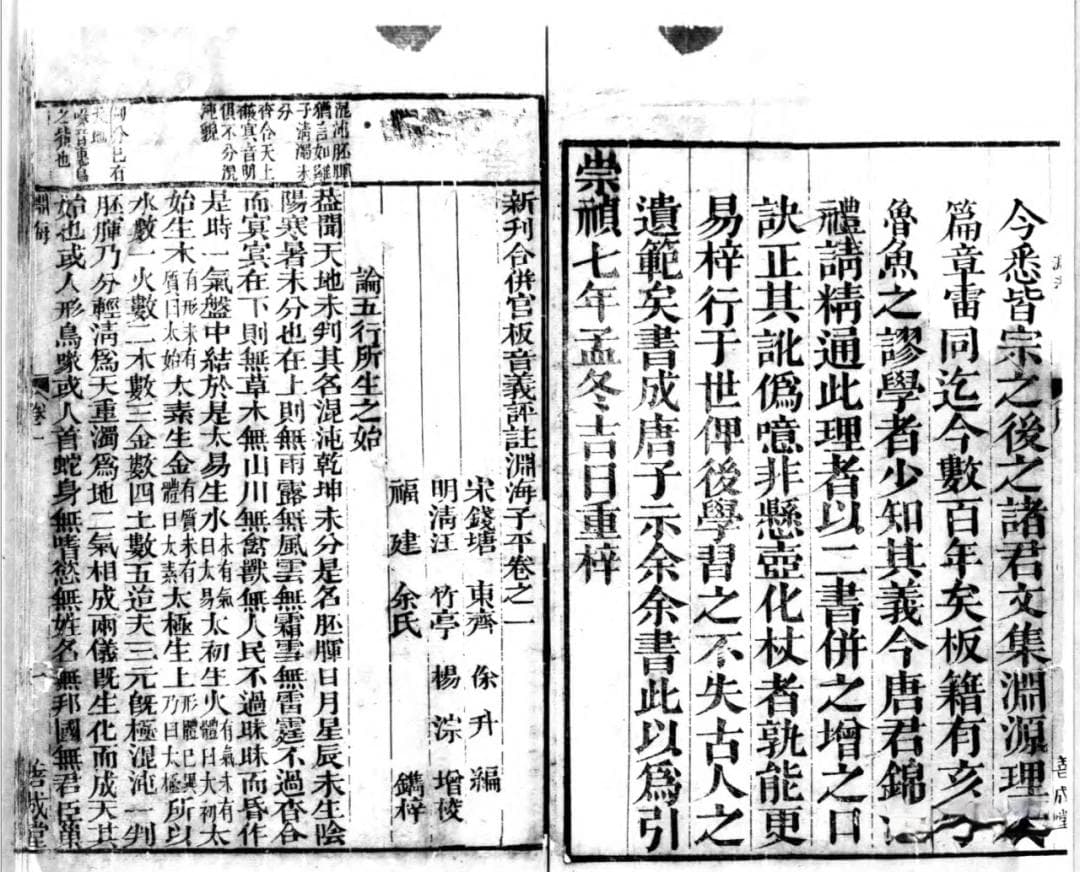 今悉皆宗之後之諸君文集淵源理
篇章雷同迄今數百年矣板籍有亥
魯魚之謬學者少知其義今唐君錦
禮請精通此理者以二書併之增之曰
訣正其訛僞噫非懸壺化杖者孰能更
易梓行于世俾後學習之不失古人之
遺範矣書成唐子示余余書此以爲引
崇禎七年孟冬吉日重梓
善成堂
混沌胚腪
猶言如雞
子清濁未
分
杳合天上
冥音明
俱不分混
沌貌
判分已有
天地
之類也
新刊合併官板音義評註淵海子平卷之一
宋錢塘 東齊 徐升 編
明清江 竹亭 楊淙 增校
福建 余氏 鐫梓
論五行所生之始
蓋聞天地未判其名混沌乾坤未分是名胚腪日月星辰未生陰
陽寒暑未分也在上則無雨露無風雲無霜雪無雷霆不過杳合
而冥冥在下則無草木無山川無禽獸無人民不過昧昧而昏作
是時一氣盤中結於是太易生水未有氣曰太易太初生火有氣未有體曰太初太
始生木有形未有質曰太始太素生金有質未有體曰太素太極生土形體已具乃曰太極所以
水數一火數二木數三金數四土數五迨夫三元旣極混沌一判
胚腪乃分輕淸爲天重濁爲地二氣相成兩儀旣生化而成天其
始也或人形鳥喙或人首蛇身無嗜慾無姓名無邦國無君臣巢
淵海
卷一
一
善成堂